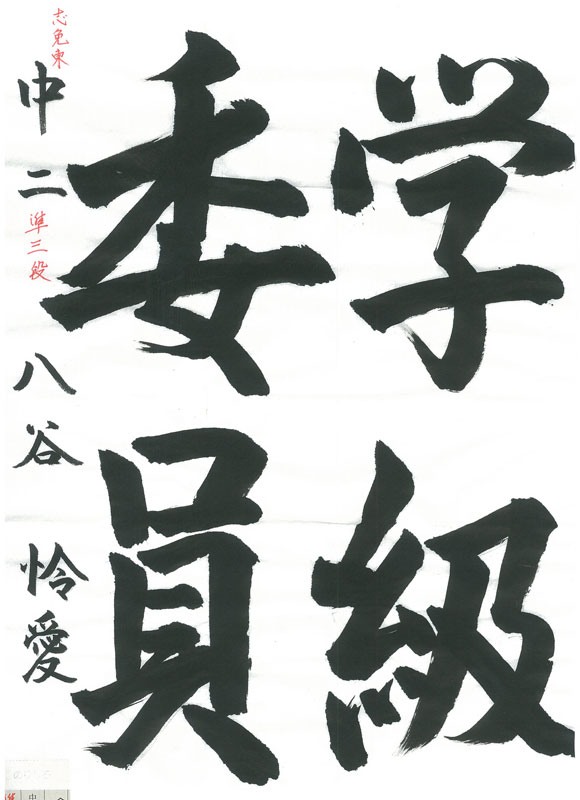 学級
委員
志免東
中二 準三段 八谷 怜愛